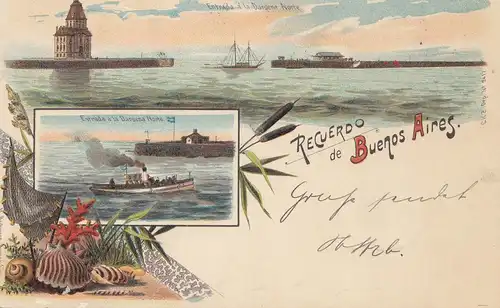 Entrada á la Darsena Norte
Entrada á la Darsena Norte
RECUERDO
de BUENOS AIRES.
Gruss sendet